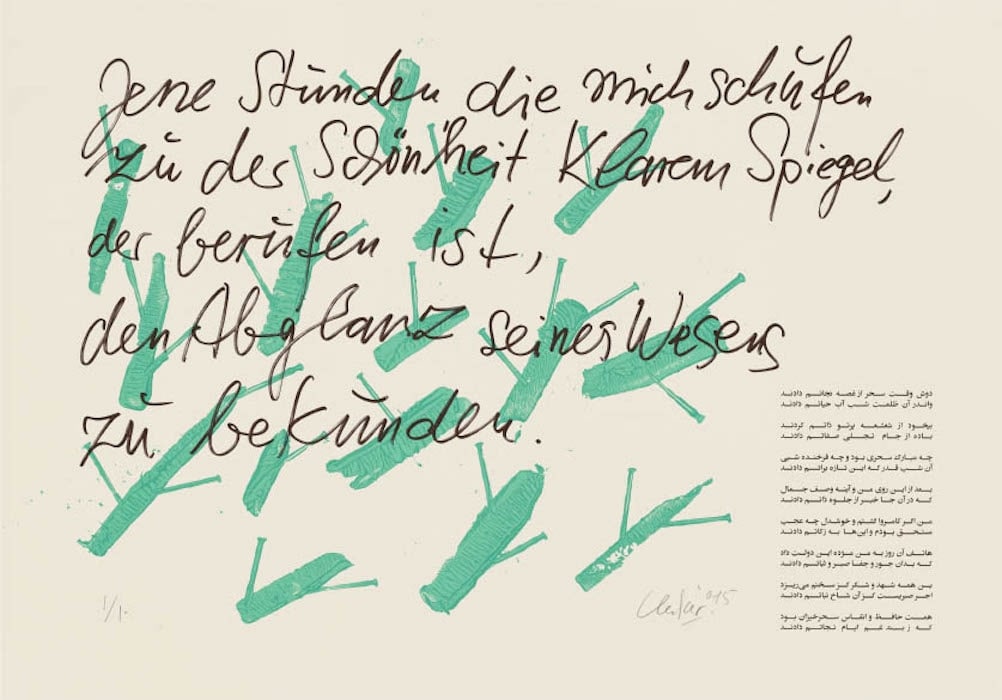 Jene Stunden die mich schufen
zu der Schönheit Klarem Spiegel,
der berufen ist,
den Abglanz seines Wesens
zu bekunden.
دوش وقت سحر از غصه نجاتم دادند
واندر آن ظلمت شب آب حیاتم دادند
بیخود از شعشعه پرتو ذاتم کردند
باده از جام تجلی صفاتم دادند
چه مبارک سحری بود و چه فرخنده شبی
آن شب قدر که این تازه براتم دادند
بعد از این روی من و آینه وصف جمال
که در آن جا خبر از جلوه ذاتم دادند
من اگر کامروا گشتم و خوشدل چه عجب
مستحق بودم و این‌ها به زکاتم دادند
هاتف آن روز به من مژده این دولت داد
که بدان جور و جفا صبر و ثباتم دادند
این همه شهد و شکر کز سخنم می‌ریزد
اجر صبریست کز آن شاخ نباتم دادند
همت حافظ و انفاس سحرخیزان بود
که ز بند غم ایام نجاتم دادند
'15